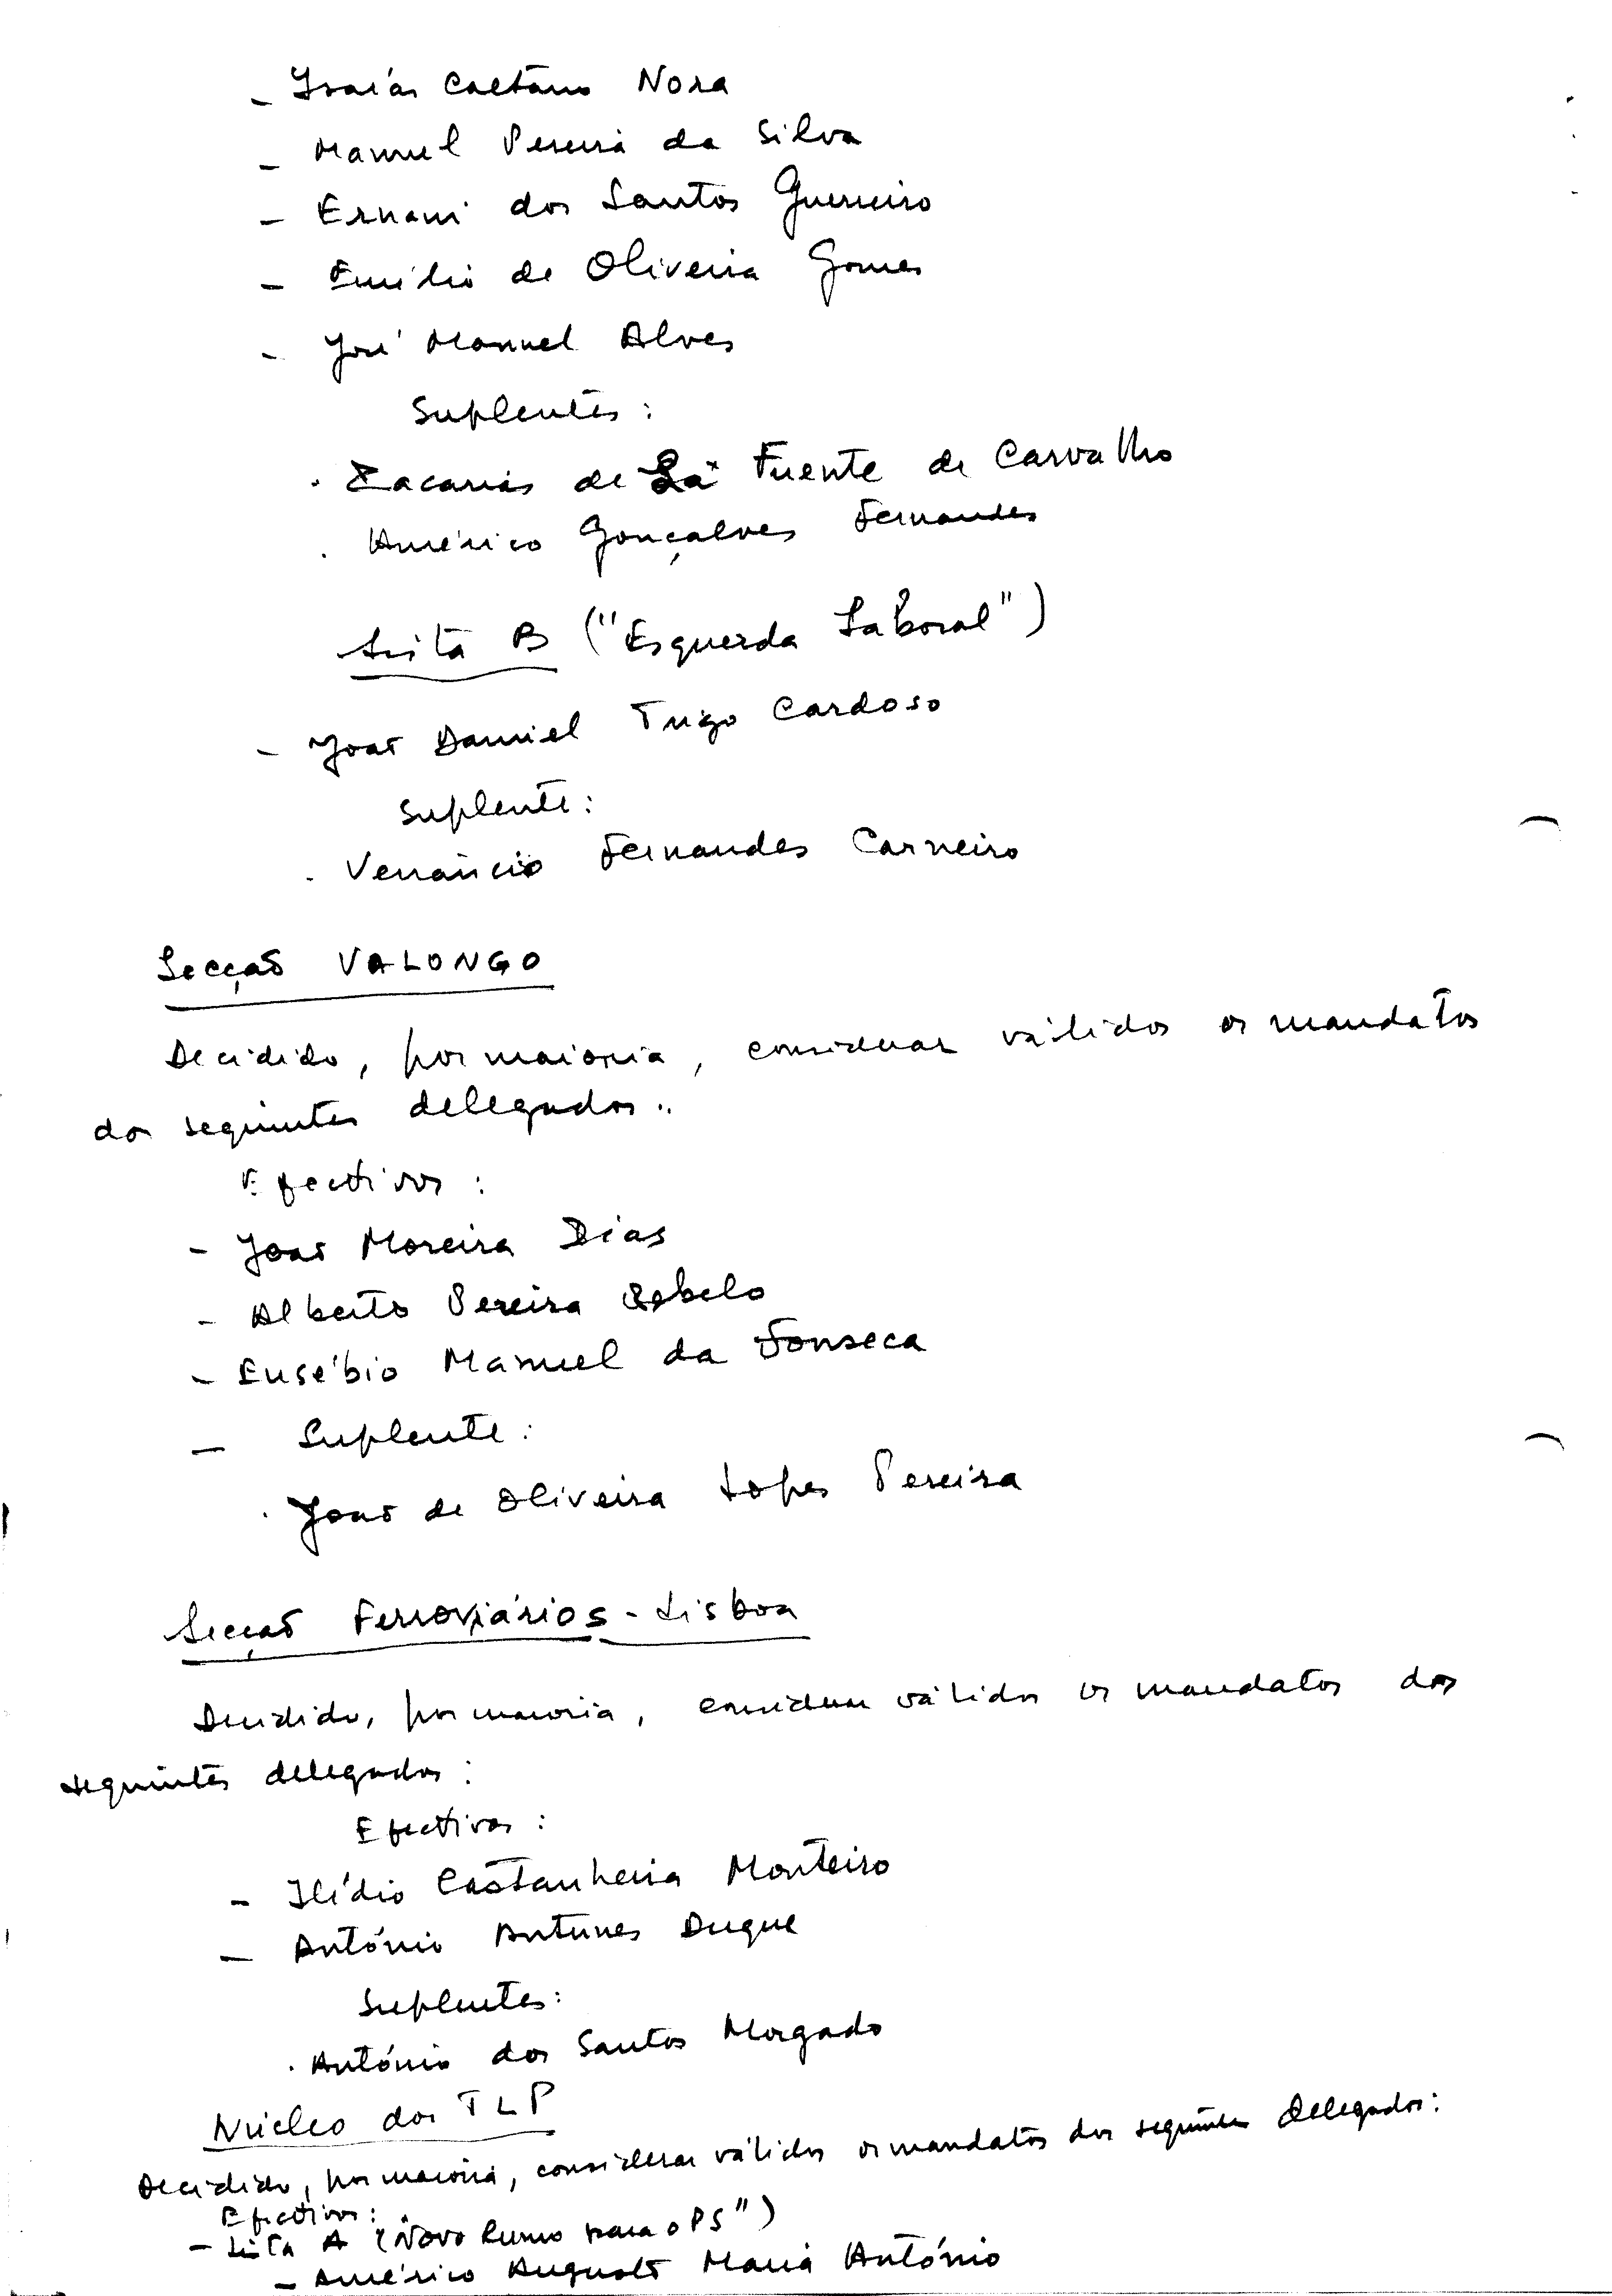 - Isaías Caetano Nora
- Manuel Pereira da Silva
- Ernani dos Santos Guerreiro
- Emílio de Oliveira Gomes
- José Manuel Alves
Suplentes :
. Zacarias de La Fuente de Carvalho
. Américo Gonçalves Fernandes
Lista B ("Esquerda Laboral")
- João Daniel Trigo Cardoso
Suplente :
. Venâncio Fernandes Carneiro
Secção VALONGO
Decidido, por maioria, considerar válidos os mandatos
dos seguintes delegados :
Efectivos :
- João Moreira Dias
- Alberto Pereira Rebelo
- Eusébio Manuel da Fonseca
- Suplente :
. João de Oliveira Lopes Pereira
Secção Ferroviários - Lisboa
Decidido, por maioria, considerar válidos os mandatos dos
seguintes delegados :
Efectivos :
- Ilídio Castanheira Monteiro
- António Antunes Duque
Suplentes :
. António dos Santos Morgado
Núcleo dos TLP
Decidido, por maioria, considerar válidos os mandatos dos seguintes delegados :
Efectivos :
- Lista A ("Novo Rumo para o PS")
- Américo Augusto Maria António